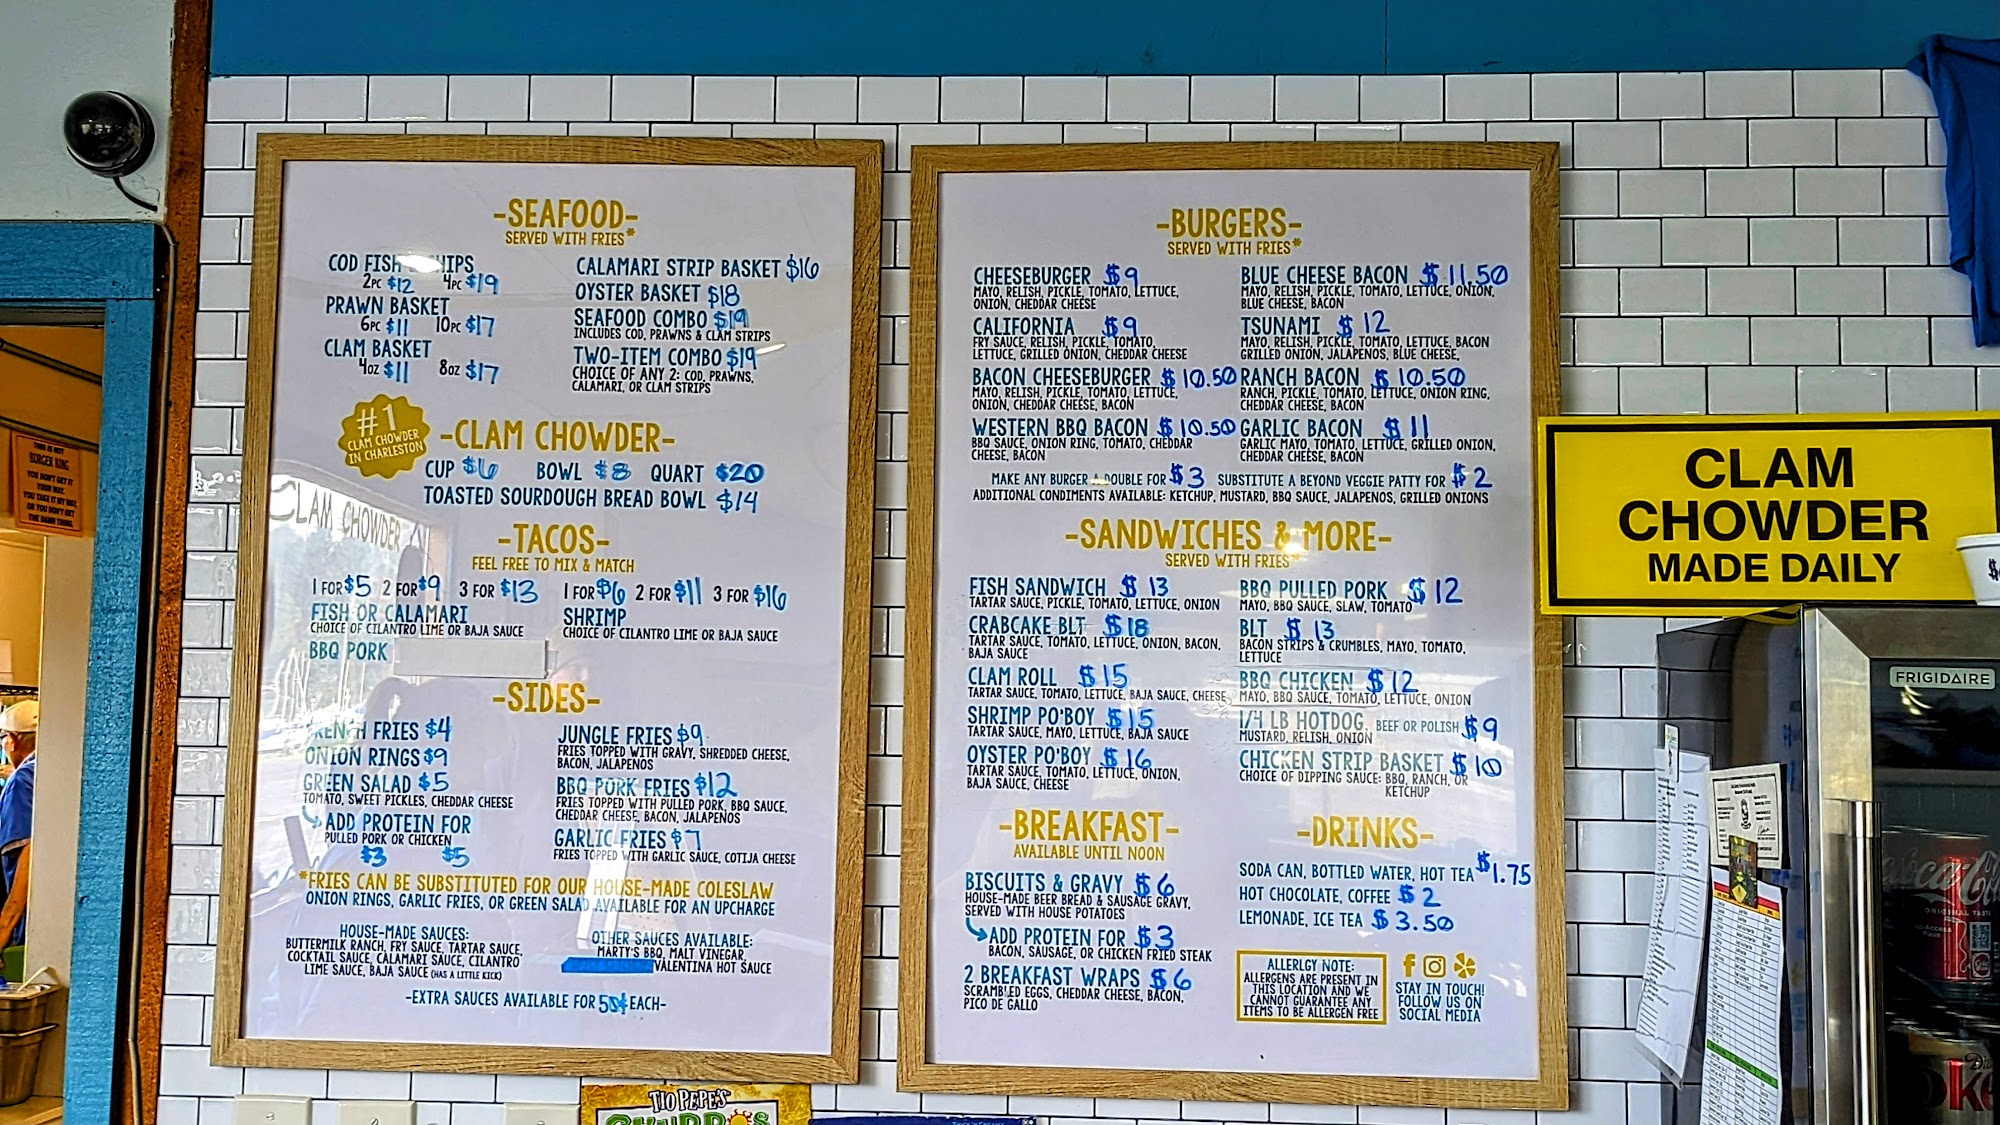 -SEAFOOD-
SERVED WITH FRIES*
COD FISH HIPS
2PC $12 4PC $19
PRAWN BASKET
6PC $11 10PC $17
CLAM BASKET
4OZ $11 8OZ $17
CALAMARI STRIP BASKET $16
OYSTER BASKET $18
SEAFOOD COMBO $19
INCLUDES COD, PRAWNS & CLAM STRIPS
TWO-ITEM COMBO $19
CHOICE OF ANY 2: COD, PRAWNS,
CALAMARI, OR CLAM STRIPS
#1
CLAM CHOWDER
IN CHARLESTON
-CLAM CHOWDER-
CUP $6 BOWL $8 QUART $20
TOASTED SOURDOUGH BREAD BOWL $14
CLAM CHOWDER
-TACOS-
FEEL FREE TO MIX & MATCH
1 FOR $5 2 FOR $9 3 FOR $13
FISH OR CALAMARI
CHOICE OF CILANTRO LIME OR BAJA SAUCE
BBQ PORK
1 FOR $6 2 FOR $11 3 FOR $16
SHRIMP
CHOICE OF CILANTRO LIME OR BAJA SAUCE
-SIDES-
FRENCH FRIES $4
ONION RINGS $9
GREEN SALAD $5
TOMATO, SWEET PICKLES, CHEDDAR CHEESE
ADD PROTEIN FOR
PULLED PORK OR CHICKEN
$3 $5
JUNGLE FRIES $9
FRIES TOPPED WITH GRAVY, SHREDDED CHEESE,
BACON, JALAPENOS
BBQ PORK FRIES $12
FRIES TOPPED WITH PULLED PORK, BBQ SAUCE,
CHEDDAR CHEESE, BACON, JALAPENOS
GARLIC FRIES $7
FRIES TOPPED WITH GARLIC SAUCE, COTIJA CHEESE
*FRIES CAN BE SUBSTITUTED FOR OUR HOUSE-MADE COLESLAW
ONION RINGS, GARLIC FRIES, OR GREEN SALAD AVAILABLE FOR AN UPCHARGE
HOUSE-MADE SAUCES:
BUTTERMILK RANCH, FRY SAUCE, TARTAR SAUCE,
COCKTAIL SAUCE, CALAMARI SAUCE, CILANTRO
LIME SAUCE, BAJA SAUCE (HAS A LITTLE KICK)
OTHER SAUCES AVAILABLE:
MARTY'S BBQ, MALT VINEGAR,
VALENTINA HOT SAUCE
-EXTRA SAUCES AVAILABLE FOR 50¢ EACH-
-BURGERS-
SERVED WITH FRIES*
CHEESEBURGER $9
MAYO, RELISH, PICKLE, TOMATO, LETTUCE,
ONION, CHEDDAR CHEESE
CALIFORNIA $9
FRY SAUCE, RELISH, PICKLE, TOMATO,
LETTUCE, GRILLED ONION, CHEDDAR CHEESE
BACON CHEESEBURGER $10.50
MAYO, RELISH, PICKLE, TOMATO, LETTUCE,
ONION, CHEDDAR CHEESE, BACON
WESTERN BBQ BACON $10.50
BBQ SAUCE, ONION RING, TOMATO, CHEDDAR
CHEESE, BACON
BLUE CHEESE BACON $11.50
MAYO, RELISH, PICKLE, TOMATO, LETTUCE, ONION,
BLUE CHEESE, BACON
TSUNAMI $12
MAYO, RELISH, PICKLE, TOMATO, LETTUCE, BACON
GRILLED ONION, JALAPENOS, BLUE CHEESE,
RANCH BACON $10.50
RANCH, PICKLE, TOMATO, LETTUCE, ONION RING,
CHEDDAR CHEESE, BACON
GARLIC BACON $11
GARLIC MAYO, TOMATO, LETTUCE, GRILLED ONION,
CHEDDAR CHEESE, BACON
MAKE ANY BURGER A DOUBLE FOR $3 SUBSTITUTE A BEYOND VEGGIE PATTY FOR $2
ADDITIONAL CONDIMENTS AVAILABLE: KETCHUP, MUSTARD, BBQ SAUCE, JALAPENOS, GRILLED ONIONS
-SANDWICHES & MORE-
SERVED WITH FRIES*
FISH SANDWICH $13
TARTAR SAUCE, PICKLE, TOMATO, LETTUCE, ONION
CRABCAKE BLT $18
TARTAR SAUCE, TOMATO, LETTUCE, ONION, BACON,
BAJA SAUCE
CLAM ROLL $15
TARTAR SAUCE, TOMATO, LETTUCE, BAJA SAUCE, CHEESE
SHRIMP PO'BOY $15
TARTAR SAUCE, MAYO, LETTUCE, BAJA SAUCE
OYSTER PO'BOY $16
TARTAR SAUCE, TOMATO, LETTUCE, ONION,
BAJA SAUCE, CHEESE
BBQ PULLED PORK $12
MAYO, BBQ SAUCE, SLAW, TOMATO
BLT $13
BACON STRIPS & CRUMBLES, MAYO, TOMATO,
LETTUCE
BBQ CHICKEN $12
MAYO, BBQ SAUCE, TOMATO, LETTUCE, ONION
1/4 LB HOTDOG, BEEF OR POLISH $9
MUSTARD, RELISH, ONION
CHICKEN STRIP BASKET $10
CHOICE OF DIPPING SAUCE: BBQ, RANCH, OR
KETCHUP
-BREAKFAST-
AVAILABLE UNTIL NOON
BISCUITS & GRAVY $6
HOUSE-MADE BEER BREAD & SAUSAGE GRAVY,
SERVED WITH HOUSE POTATOES
ADD PROTEIN FOR $3
BACON, SAUSAGE, OR CHICKEN FRIED STEAK
2 BREAKFAST WRAPS $6
SCRAMBLED EGGS, CHEDDAR CHEESE, BACON,
PICO DE GALLO
-DRINKS-
SODA CAN, BOTTLED WATER, HOT TEA $1.75
HOT CHOCOLATE, COFFEE $2
LEMONADE, ICE TEA $3.50
ALLERLGY NOTE:
ALLERGENS ARE PRESENT IN
THIS LOCATION AND WE
CANNOT GUARANTEE ANY
ITEMS TO BE ALLERGEN FREE
STAY IN TOUCH!
FOLLOW US ON
SOCIAL MEDIA
CLAM
CHOWDER
MADE DAILY
FRIGIDAIRE
THIS IS NOT
BURGER KING
YOU DON'T GET IT
YOUR WAY.
YOU TAKE IT MY WAY,
OR YOU DON'T GET
THE DAMN THING.
TIO PEPE'S
CHURROS
ORIGINAL TASTE